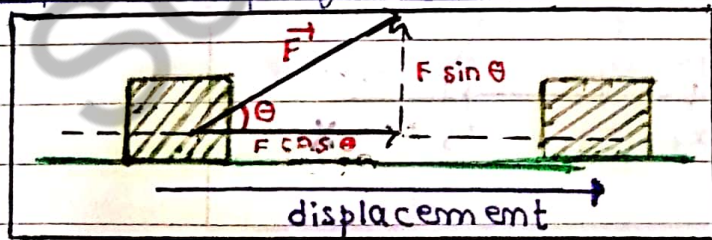 F⃗
F sin θ
θ
F cosθ
displacement